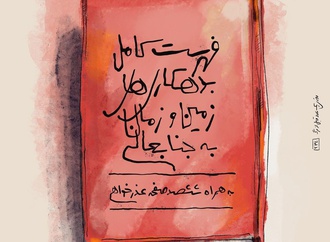 فهرست کامل
بدهکاری‌های
زمین و زمان
به جنابعالی
به همراه ششصد صفحه عذرخواهی